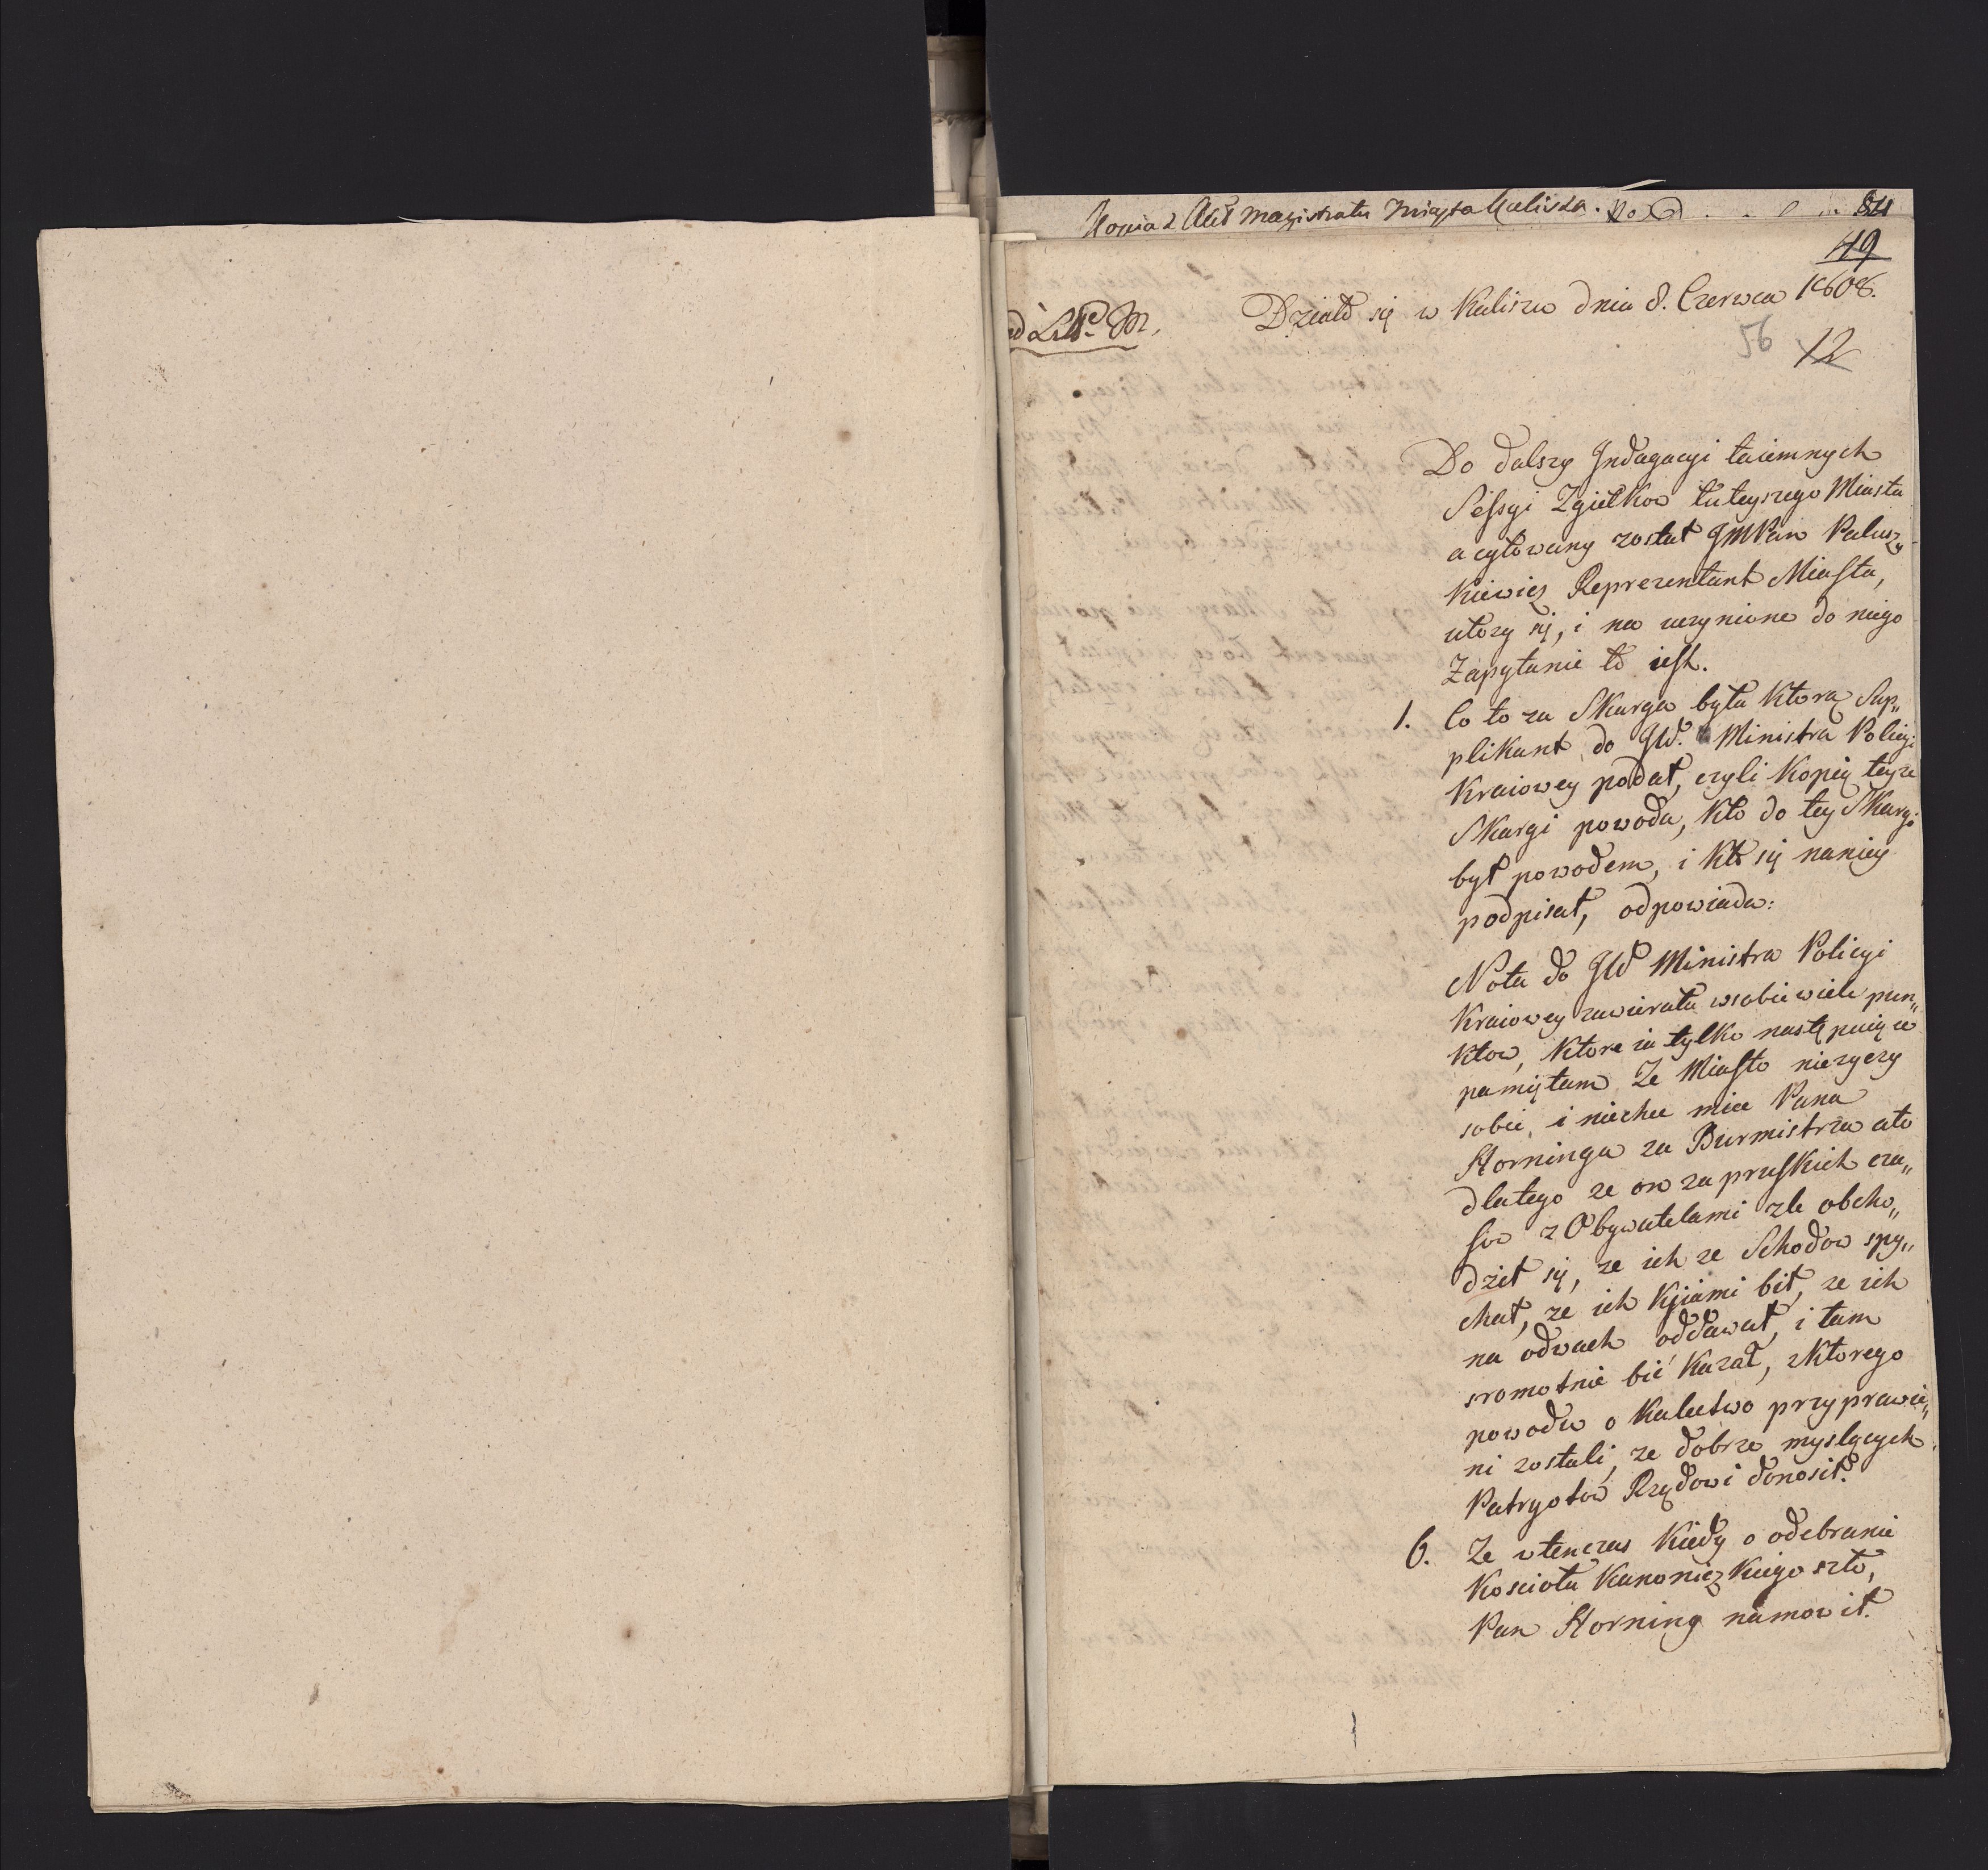 Kopia z Akt Magistratu Miasta Kalisza.
84
49
ad Litt. M.
Działo się w Kaliszu dnia 8. Czerwca 1808.
56
12
Do dalszy Indagacyi taiemnych
Sessyi Zgiełkow tuteyszego Miasta
acytowany został JMPan Palusz„
kiewicz Reprezentant Miasta,
ktory się, i na uczynione do niego
Zapytanie to iest.
1. Co to za Skarga była ktorą Sup„
plikant do JW. Ministra Policyi
Kraiowey podał, czyli Kopią teyze
Skargi powoda, Kto do tey Skargi
był powodem, i kto się na niey
podpisał, odpowiada:
Nota do JW Ministra Policyi
Kraiowey zawierała w sobie wiele pun„
ktow, ktore ia tylko następuiące
pamiętam Ze Miasto nie zyczy
sobie, i niechce miec Pana
Horninga za Burmistrza a to
dlatego ze on za pruskich cza„
sow z Obywatelami zle obcho„
dził się, ze ich ze Schodow spy„
chał, ze ich kjiami bił, ze ich
na odwach oddawał, i tam
sromotnie bić kazał, z ktorego
powodu o kalectwo przyprawie„
ni zostali, ze dobrze myslących
Patryotow Rządowi donosił.
6. Ze wtenczas kiedy o odebranie
Koscioła Kanoniczkiego szło,
Pan Horning namowił.